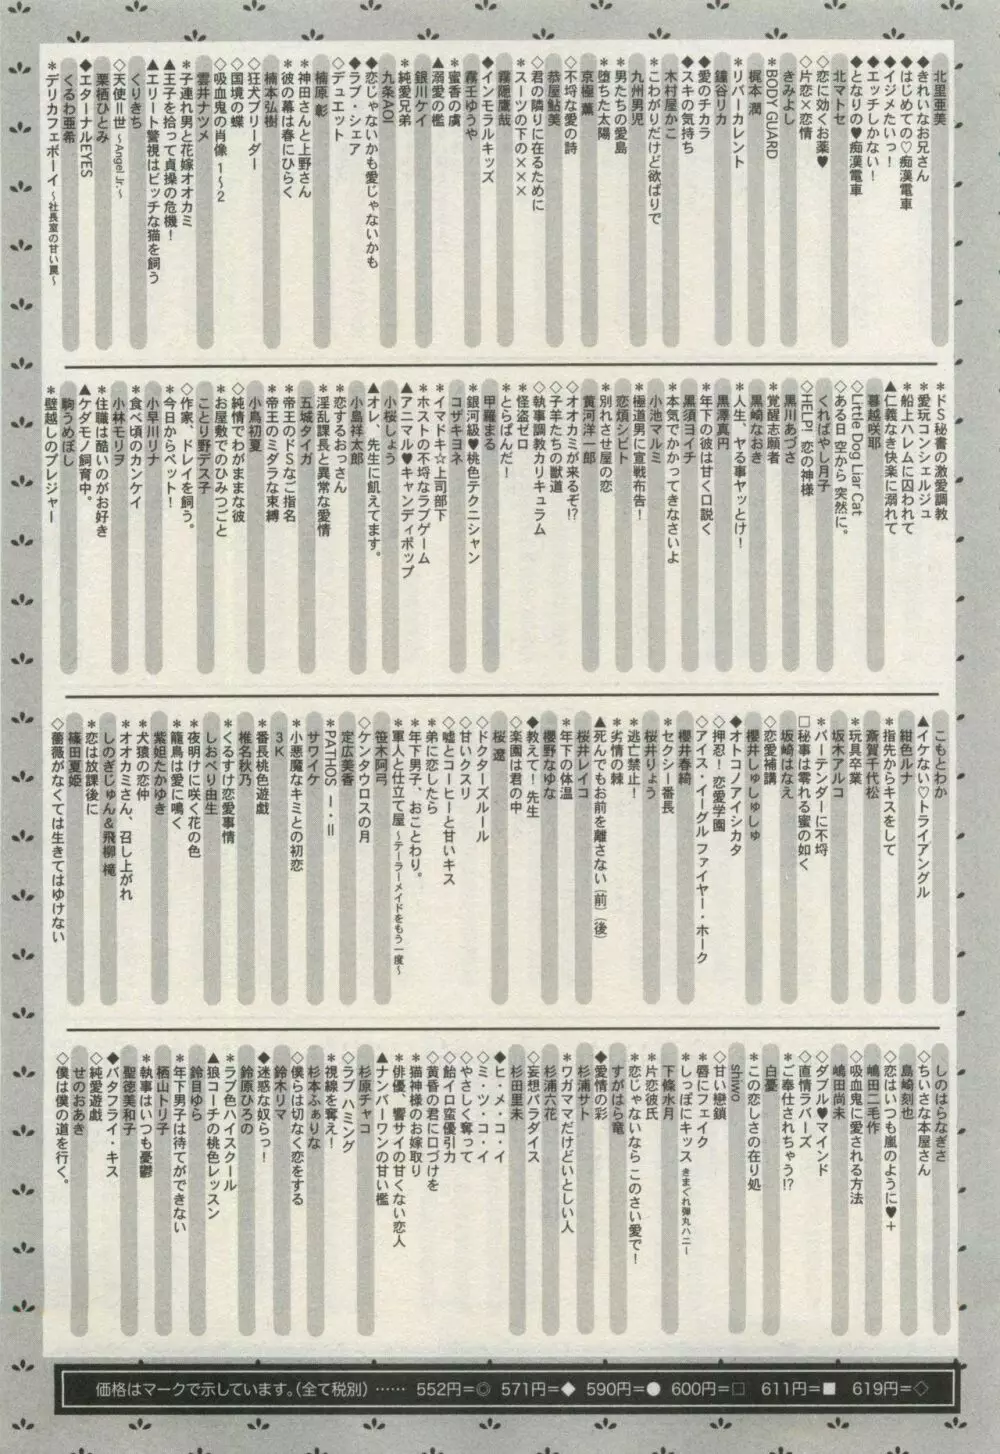 北里亜美
◆きれいなお兄さん
◆はじめての♡痴漢電車
◆イジメたいっ！
◆エッチしかない！
◆となりの♥痴漢電車
北マトセ
◇恋に効くお薬♥
◇片恋×恋情
きみよし
＊BODY GUARD
梶本 潤
＊リバーカレント
鐘谷リカ
◆愛のチカラ
◆スキの気持ち
木村屋かこ
＊こわがりだけど欲ばりで
九州男児
＊男たちの愛島
＊堕ちた太陽
京極 薫
◇不埒な愛の詩
恭屋鮎美
◇君の隣りに在るために
＊スーツの下の×××
霧隠鷹哉
◆インモラルキッズ
霧壬ゆうや
＊蜜香の虜
▲溺愛の檻
銀川ケイ
＊純愛兄弟
九条AOI
◆恋じゃないかも愛じゃないかも
◆ラブ・シェア
◇デュエット
楠原 彰
＊神田さんと上野さん
＊彼の幕は春にひらく
楠本弘樹
◇狂犬ブリーダー
◇国境の蝶
◇吸血鬼の肖像 1〜2
雲井ナツメ
＊子連れ男と花嫁オオカミ
▲王子を拾って貞操の危機！
▲エリート警視はビッチな猫を飼う
くりきち
◇天使Ⅱ世 〜Angel Jr.〜
栗栖ひとみ
◆エターナルEYES
くるわ亜希
＊デリカフェボーイ 〜社長室の甘い罠〜
＊ドS秘書の激愛調教
＊愛玩コンシェルジュ
＊船上ハレムに囚われて
▲仁義なき快楽に溺れて
暮越咲耶
◇Little Dog Liar Cat
◇ある日 空から 突然に。
くればやし月子
◇HELP! 恋の神様
黒川あづさ
＊覚醒志願者
黒崎なおき
＊人生、ヤる事ヤッとけ！
黒澤真円
＊年下の彼は甘く口説く
黒須ヨイチ
＊本気でかかってきなさいよ
小池マルミ
＊極道男に宣戦布告！
恋煩シビト
＊別れさせ屋の恋
黄河洋一郎
◇オオカミが来るぞ!?
◇子羊たちの獣道
◇執事調教カリキュラム
＊怪盗ゼロ
＊とらぱんだ！
甲羅まる
＊銀河級♥桃色テクニシャン
コザキヨネ
＊イマドキ☆上司部下
＊ホストの不埒なラブゲーム
▲アニマル♥キャンディポップ
小桜しょう
▲オレ、先生に飢えてます。
小島祥太郎
＊恋するおっさん
＊淫乱課長と異常な愛情
五城タイガ
＊帝王のドSなご指名
＊帝王のミダラな束縛
小鳥初夏
◇純情でわがままな彼
＊お屋敷でのひみつごと
ことり野デス子
◇作家、ドレイを飼う。
＊今日からペット！
小早川リリナ
＊食べ頃のカンケイ
小林モリヲ
＊住職は酷いのがお好き
▲ケダモノ飼育中。
駒うめぼし
＊壁越しのプレジャー
こもとわか
▲イケない♡トライアングル
紺色ルナ
＊指先からキスをして
斎賀千代松
＊玩具卒業
坂木アルコ
＊バーテンダーに不埒
□秘事は零れる蜜の如く
坂崎はなえ
◇恋愛補講
櫻井しゅしゅしゅ
◆オトコノアイシカタ
◇押忍！恋愛学園
◇アイス・イーグル ファイヤー・ホーク
櫻井春綺
＊セクシー番長
桜井りょう
＊逃亡禁止！
＊劣情の棘
▲死んでもお前を離さない（前）（後）
桜井レイコ
＊年下の体温
櫻野なゆな
◆教えて！先生
◇楽園は君の中
桜 遼
◇ドクターズルール
◇甘いクスリ
◇嘘とコーヒーと甘いキス
＊弟に恋したら
＊年下男子、おことわり。
＊軍人と仕立て屋 〜テーラーメイドをもう一度〜
笹木阿弓
◇ケンタウロスの月
定広美香
＊PATHOS Ⅰ・Ⅱ
サワイケ
＊小悪魔なキミとの初恋
3K
＊番長桃色遊戯
椎名秋乃
＊くるすけ恋愛事情
しおべり由生
＊夜明けに咲く花の色
＊籠鳥は愛に鳴く
紫妲たかゆき
＊犬猿の恋仲
＊オオカミさん、召し上がれ
しのぎじゅん＆飛柳 権
＊恋は放課後に
篠田夏姫
◇薔薇がなくては生きてはゆけない
しのはらなぎさ
◇ちいさな本屋さん
島崎刻也
◇恋はいつも嵐のように♥＋
嶋田二毛作
◇吸血鬼に愛される方法
嶋田尚未
◇ダブル♥マインド
◇直情ラバーズ
＊ご奉仕されちゃう!?
白憂
＊この恋しさの在り処
shwo
◇甘い戀鎖
＊唇にフェイク
＊しっぽにキッス きまぐれ弾丸ハニー
下條水月
＊片恋彼氏
＊恋じゃないなら このさい愛で！
すがはら竜
◆愛情の彩
杉浦サト
＊ワガママだけどいとしい人
杉浦六花
◇妄想パラダイス
杉田里未
◆ヒ・メ・コ・イ
◇ミ・ツ・コ・イ
◇やさしく奪って
◇飴イロ蛮優引力
◇黄昏の君に口づけを
＊猫神様のお嫁取り
＊俳優、響サイの甘くない恋人
▲ナンバーワンの甘い檻
杉原チャコ
◇ラブ、ハミング
＊視線を奪え！
杉本ふぁりな
◇僕らは切なく恋をする
鈴木リマ
◆迷惑な奴らっ！
鈴原ひろの
＊ラブ色ハイスクール
▲狼コーチの桃色レッスン
鈴目ゆら
＊年下男子は待てができない
栖山トリ子
＊執事はいつも憂鬱
聖徳美和子
◆バタフライ・キス
◇純愛遊戯
せのおあき
◇僕は僕の道を行く。
価格はマークで示しています。（全て税別）…… 552円＝◎ 571円＝◆ 590円＝● 600円＝□ 611円＝■ 619円＝◇